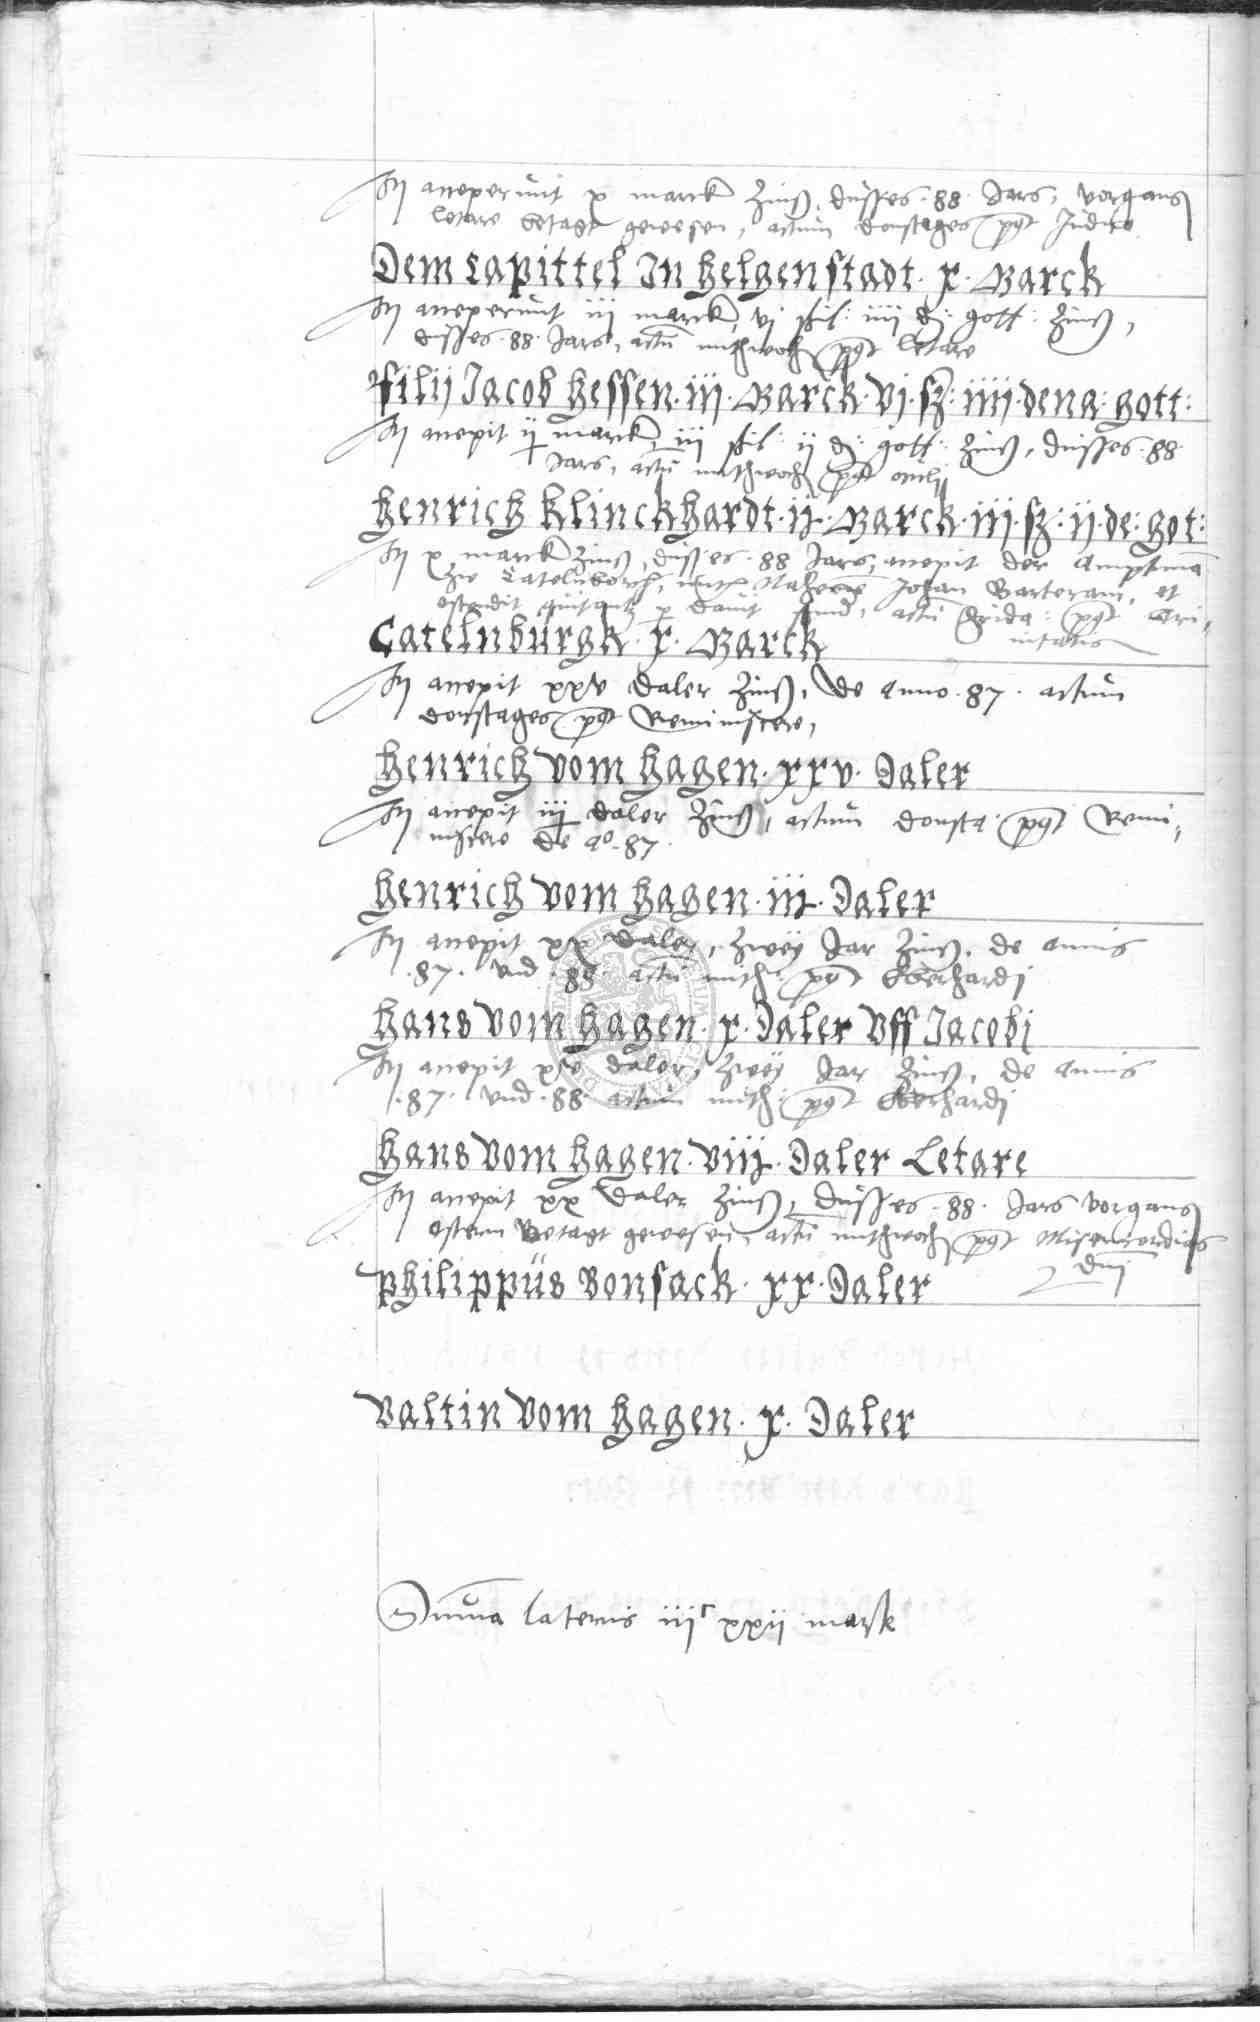 acceperunt x marck Zinß, dusses 88 Jars, vorgangs
letare betagt gewesen, actum donstages post Judica
Dem Capittel In Helgenstadt. x. Marck
acceperunt iii marck, vj ßil: iiii d: gott: Zinß,
dusses 88 Jars, actū mithwoch post letare
Filij Jacob Hessen. iij. Marck. vj. sz: iiij. dena: gott:
accepit ij marck, iii ßil: ij d: gott: Zinß, dusses 88
Jars, actū mithwoch post oculi
Henrich Klinckhardt. ij. Marck. iij. sz: ij. de: got:
x marck Zinß, dusses 88 Jars, accepit der Amptmā
zu Catelnborch, Johan Barteram, et
ostendit quitantz actū frida: post Tri-
nitatis
Catelnburgk. x. Marck
accepit xxv daler Zinß, de Anno 87. actum
donstages post Reminiscere,
Henrich vom Hagen. xxv. Daler
accepit iij daler Zinß, actum donsta: post Remi-
niscere de Ao. 87.
Henrich vom Hagen. iij. Daler
accepit xx daler, zweÿ Jar Zinß. de Annis
.87. vnd .88. actū mith: post Eberhardj
Hans vom Hagen. x. Daler Vff Jacobi
accepit daler, zweÿ Jar Zinß, de Annis
.87. vnd .88. actum mith: post Eberhardj
Hans vom Hagen. viij. Daler Letare
accepit xx daler Zinß, dusses 88. Jars vorgangs
ostern betagt gewesen, actū mithwoch post Misericordias
dnj
Philippüs Bonsack. xx. Daler
Valtin vom Hagen. x. Daler
Suma lateris iijc xxij mark